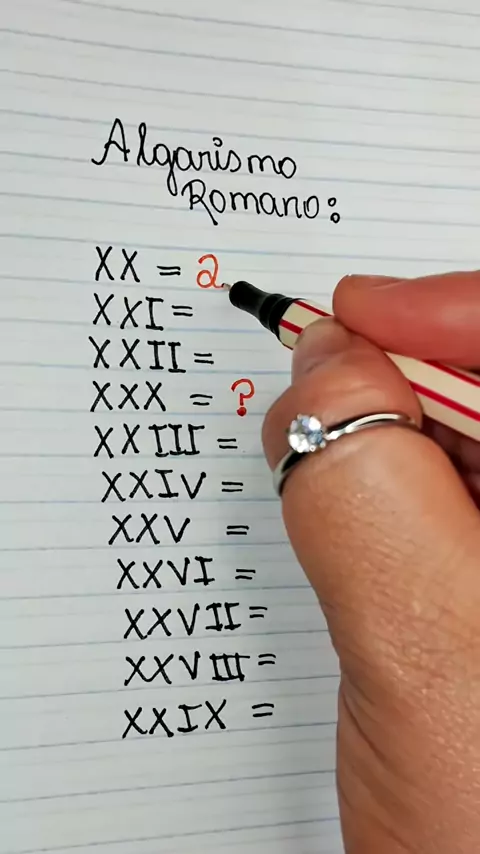 Algarismo
Romano:
XX = 2
XXI =
XXII =
XXX = ?
XXIII =
XXIV =
XXV =
XXVI =
XXVII =
XXVIII =
XXIX =